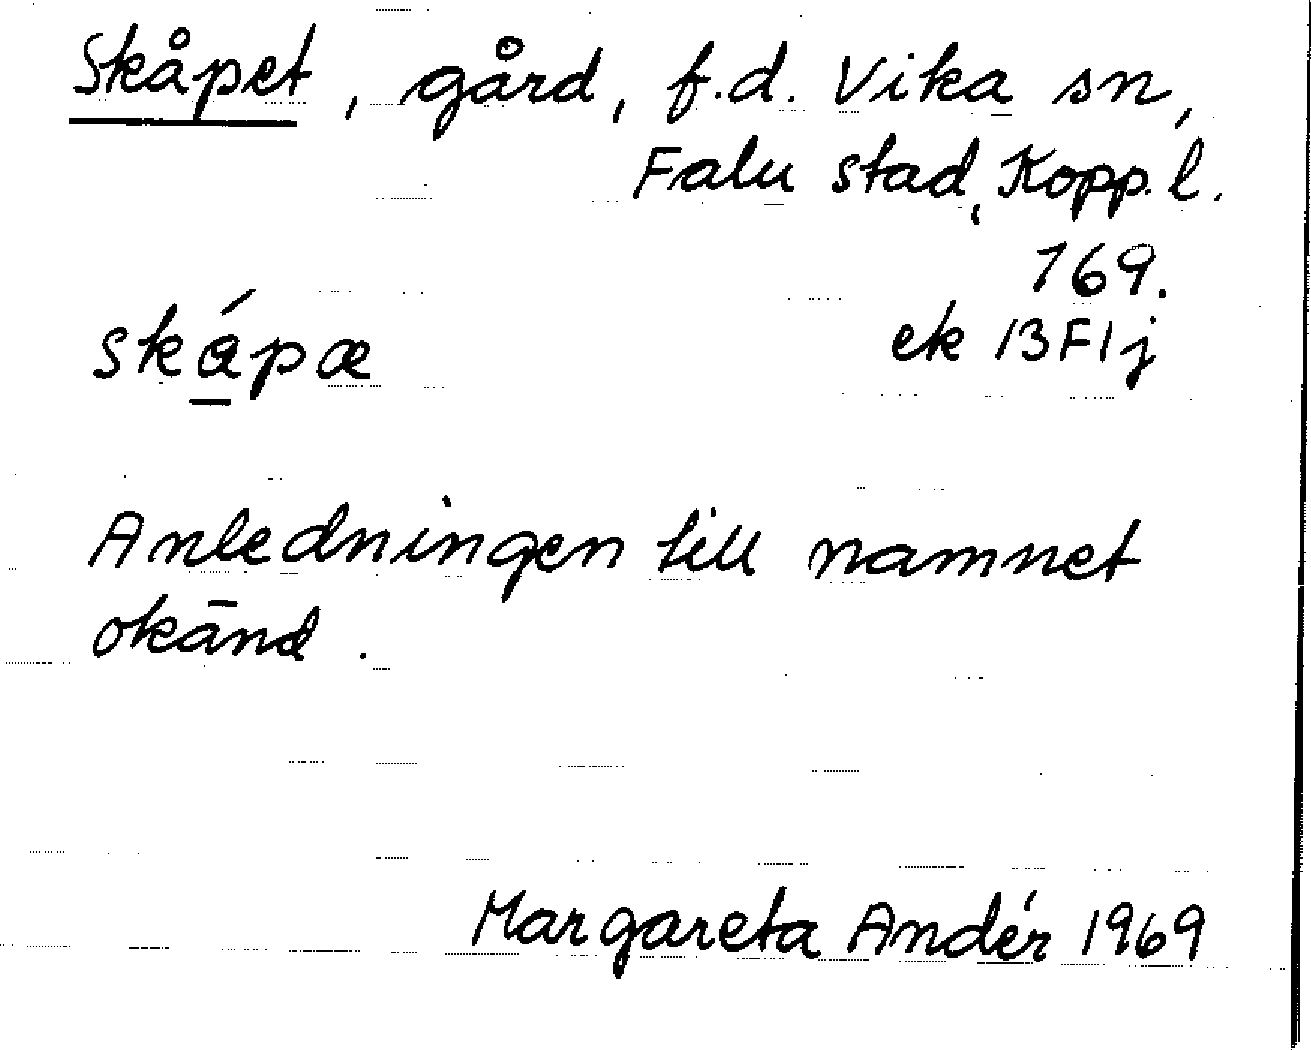 Skåpet, gård, f.d. Vika sn,
Falu stad, Kopp. l.
169.
ská̱pæ ek 13F1j
Anledningen till namnet
okänd.
Margareta Andér 1969